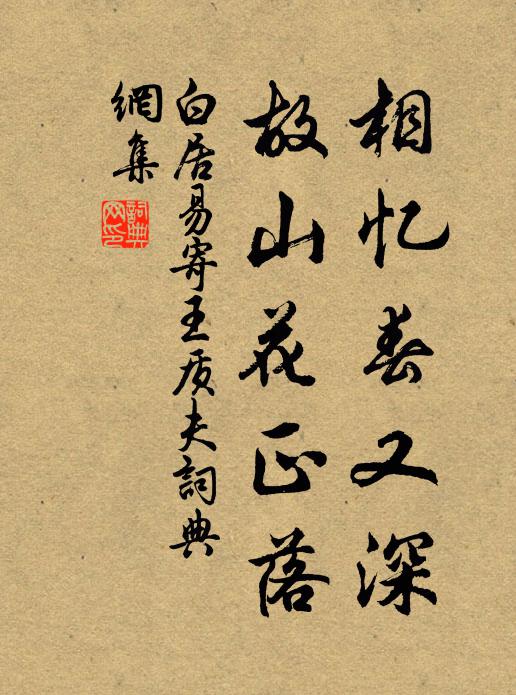 相忆春又深
故山花正落
白居易寄王质夫詞典
網集
詞典
网印